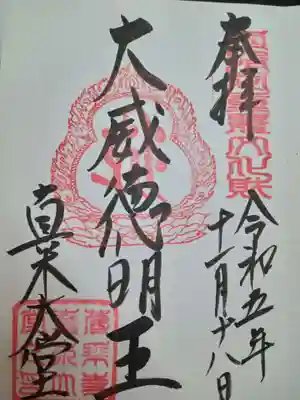 奉拝
令和五年
十一月十八日
大威徳明王
真木大堂